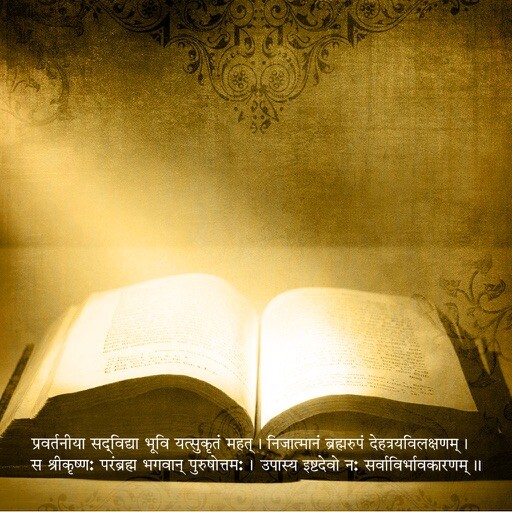 प्रवर्तनीया सद्विद्या भूवि यत्सुकृतं महत् । निजात्मानं ब्रह्मरुपं देहत्रयविलक्षणम् ।
स श्रीकृष्णः परंब्रह्म भगवान् पुरुषोत्तमः । उपास्य इष्टदेवो नः सर्वाविर्भावकारणम् ॥